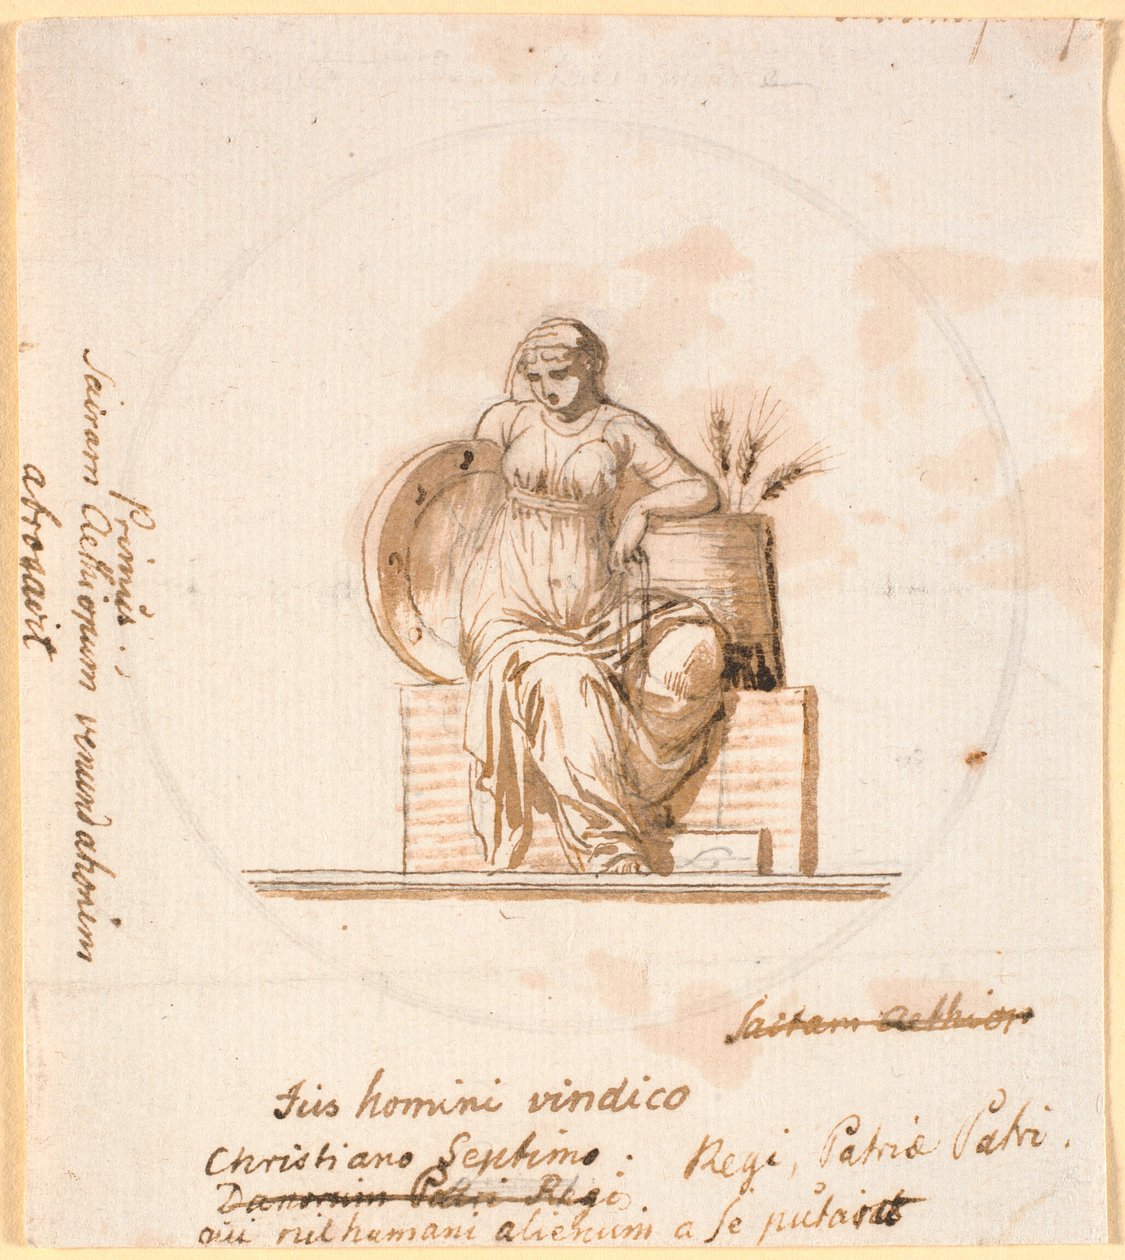 Saivam Aethiopum venundationem
Primus
abrogavit
Saevam Aethiop
Jus homini vindico
Christiano Septimo : Regi, Patriæ Patri.
Danorum Patri Regi
qui nil humani alienum a se putavit